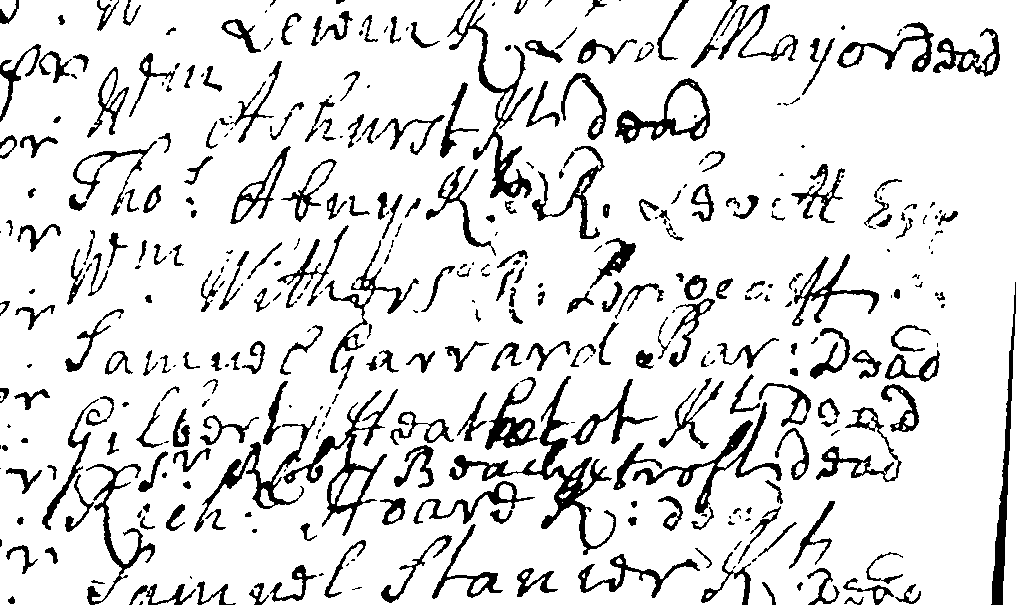 Lewin K Lord Mayor dead
Wm Ashurst Kt dead
Tho.s Abny K. R. Levitt Esq
Wm Withers R.
Samuel Garrard Bar: Dead
Gilbert Heathcot Kt Dead
Sr Rob Beachcroft dead
Rich: Hoare K: dead
Samuel Stanier Kt Dead